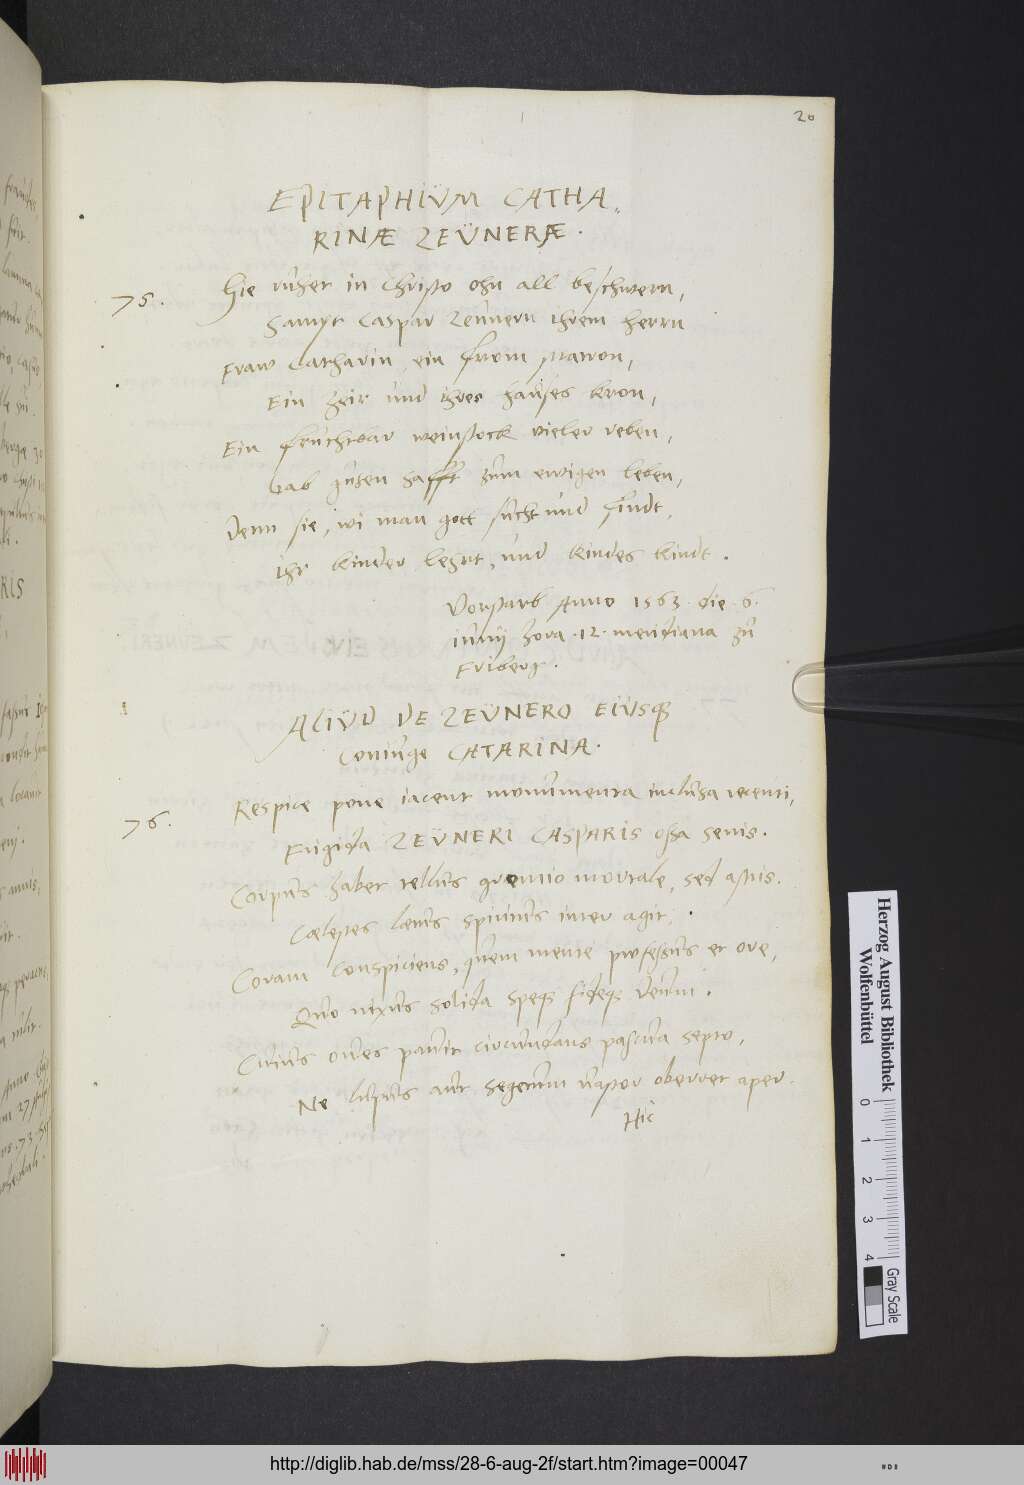 20
EPITAPHIŬM CATHA„
RINÆ ZEŬNERÆ.
75. Hie rŭhet in Christo ohn all beschwern,
Sampt Caspar Zeŭnern ihrem herrn
Fraw Catharin, ein from Matron,
Ein zeir ŭnd ihres haŭses kron,
Ein frŭchtbar weinstock vieler reben,
Gab gŭten safft zŭm ewigen leben,
Denn sie, wi man gott sŭcht ŭnd findt,
Ihr kinder lehrt, ŭnd kindes kindt.
Vorstarb Anno 1563. die. 6.
iŭnij hora .12. meridiana zŭ
Friberg.
ALIŬD DE ZEŬNERO EIŬSQ;
Coniŭge CATARINA.
76. Respice pone iacent monŭmenta inclŭsa recenti,
Frigida ZEŬNERI CASPARIS ossa senis.
Corpŭs habet tellŭs gremio mortale, sed astris.
Cœlestes lætŭs spiritŭs inter agit,
Coram conspiciens, qŭem mente professŭs et ore,
Qŭo nixŭs solida speq; fideq; Deŭm.
Cŭiŭs oŭes paŭit circŭndans pascŭa septo,
Ne lŭpŭs aŭt segetŭm ŭastor oberret aper.
Hic
Herzog August Bibliothek
Wolfenbüttel
0 1 2 3 4
Gray Scale
http://diglib.hab.de/mss/28-6-aug-2f/start.htm?image=00047